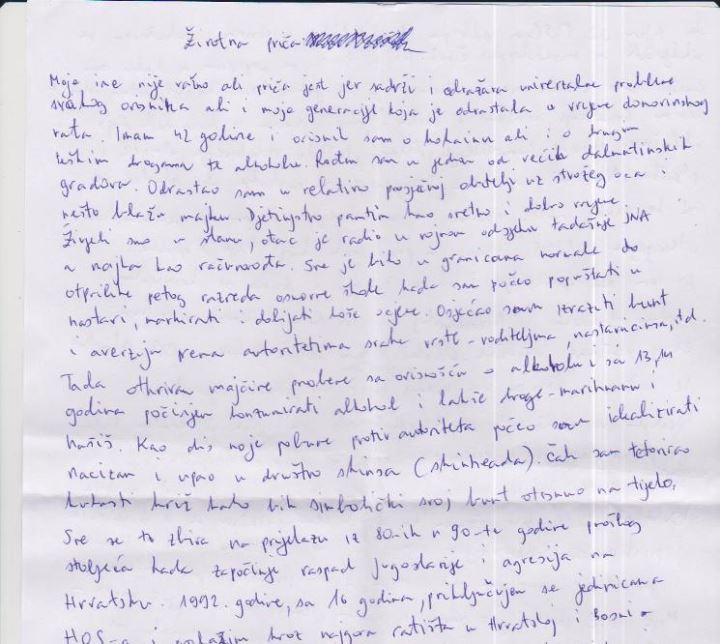 Životna priča
Moje ime nije važno ali priča jest jer sadrži i odražava univerzalne probleme
svakog ovisnika ali i moje generacije koja je odrastala u vrijeme domovinskog
rata. Imam 42 godine i ovisnik sam o kokainu ali i o drugim
teškim drogama te alkoholu. Rođen sam u jednom od većih dalmatinskih
gradova. Odrastao sam u relativno prosječnoj obitelji uz strožeg oca i
nešto blažu majku. Djetinjstvo pamtim kao sretno i dobro vrijeme.
Živjeli smo u stanu, otac je radio u vojnom odsjeku tadašnje JNA
a majka kao računovođa. Sve je bilo u granicama normale do
otprilike petog razreda osnovne škole kada sam počeo popuštati u
nastavi, markirati i dobijati loše ocjene. Osjećao sam izraziti bunt
i averziju prema autoritetima svake vrste - roditeljima, nastavnicima, itd.
Tada otkrivam majčine probleme sa ovisnošću o alkoholu i sa 13, 14
godina počinjem konzumirati alkohol i lakše droge - marihuanu i
hašiš. Kao dio moje pobune protiv autoriteta počeo sam idealizirati
nacizam i upao u društvo skinsa (skinheada). Čak sam tetovirao
kukasti križ kako bih simbolički svoj bunt otisnuo na tijelo.
Sve se to zbiva na prijelazu iz 80-ih u 90-te godine prošlog
stoljeća kada započinje raspad Jugoslavije i agresija na
Hrvatsku. 1992. godine, sa 16 godina, priključujem se jedinicama
HOS-a i prolazim kroz najgora ratišta u Hrvatskoj i Bosni -